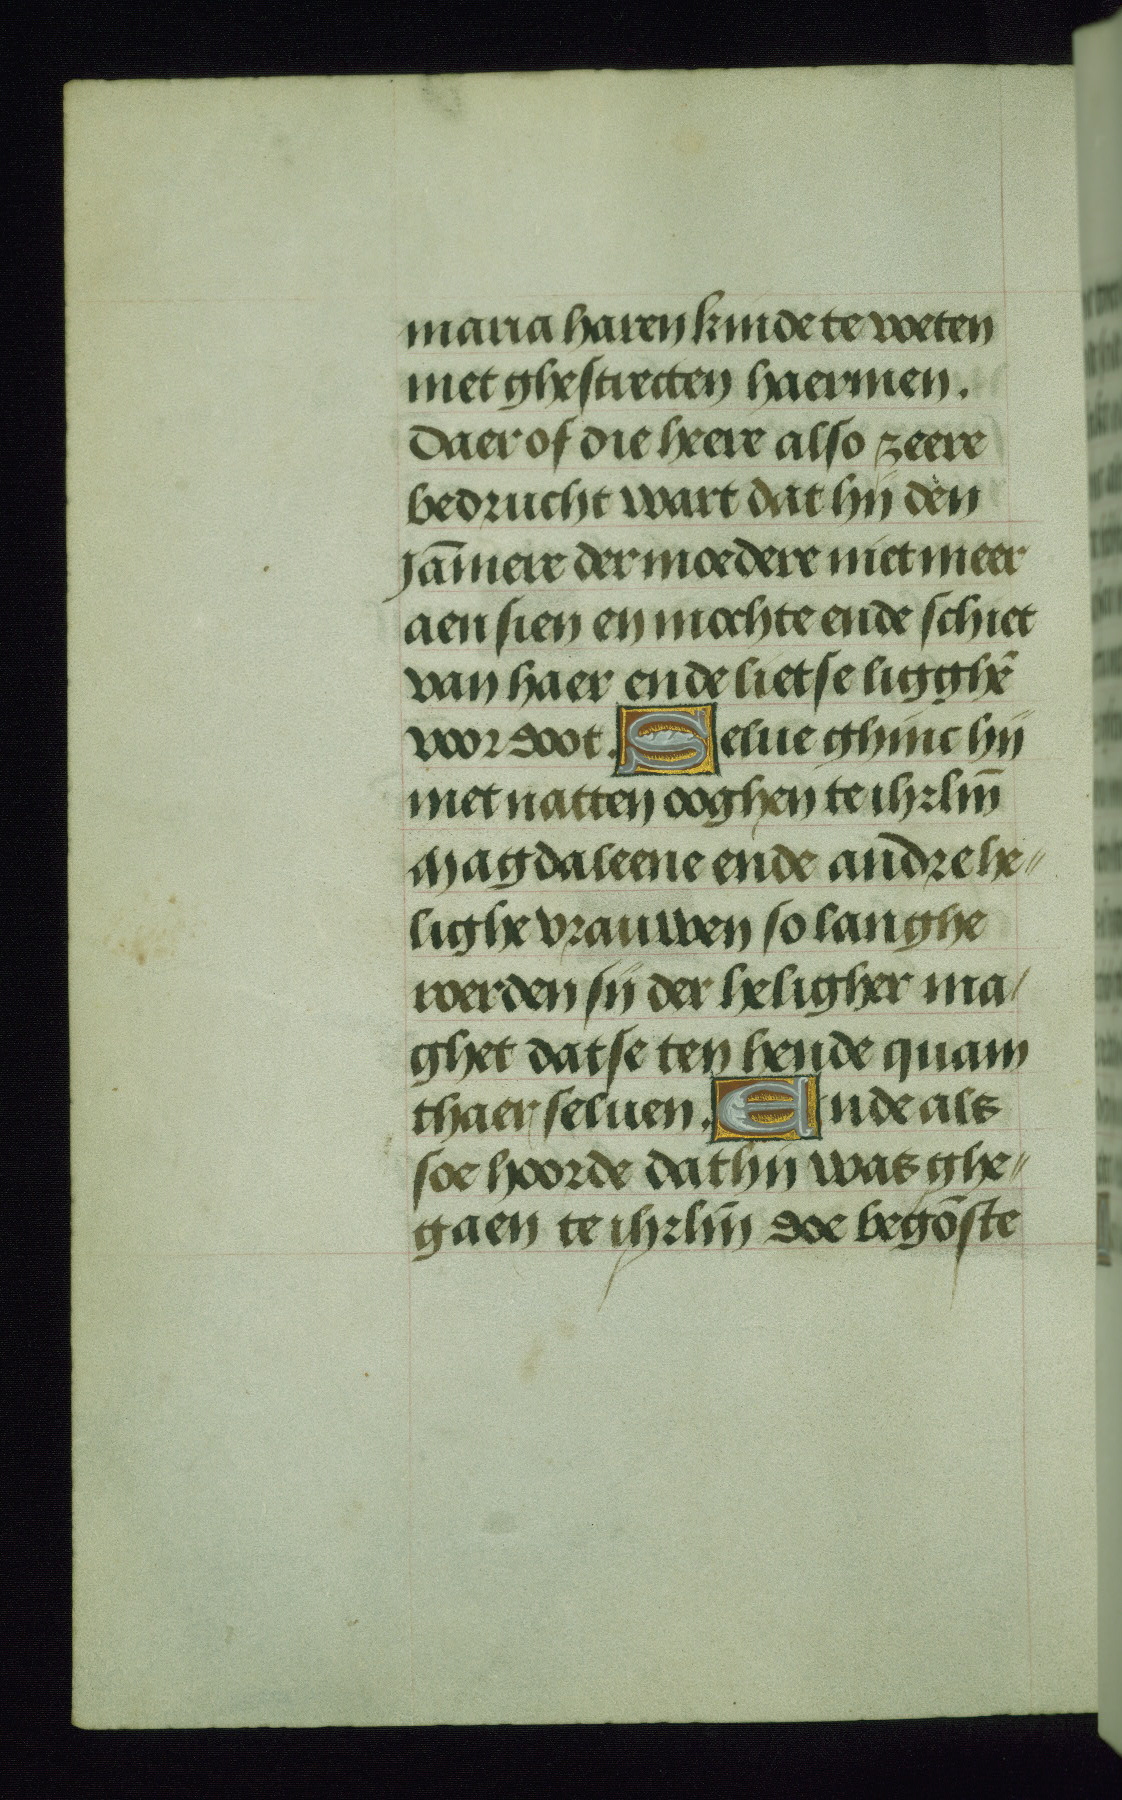 maria haren kinde te weten
met ghestrecten haermen.
Daer of die heere also zeere
bedrucht wart dat hij den
jām̄ere der moedere niet meer
aen sien en mochte ende schiet
van haer ende lietse ligghē
voor doot. Selue ghinc hij
met natten ooghen te ihrlm̄
Magdaleene ende andre he〃
lighe vrauwen so langhe
weerden sij der heligher ma/
ghet datse ten hende quam
thaer seluen. Ende als
soe hoorde dat hij was ghe〃
gaen te ihrlm̄ doe begōste